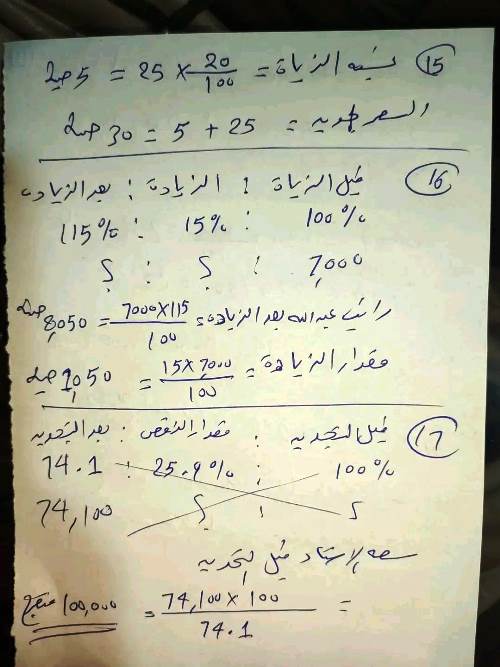 (15) نسبة الزيادة = 20/100 × 25 = 5 جنيه
السعر الجديد = 25 + 5 = 30 جنيه
(16) قبل الزيادة : الزيادة : بعد الزيادة
100% : 15% : 115%
7,000 : ؟ : ؟
راتب عبدالله بعد الزيادة = 7000×115/100 = 8,050 جنيه
مقدار الزيادة = 15×7,000/100 = 1,050 جنيه
(17) قبل التجديد : مقدار النقص : بعد التجديد
100% : 25.9% : 74.1
؟ : ؟ : 74,100
سعة الاستاد قبل التجديد
= 74,100×100/74.1 = 100,000